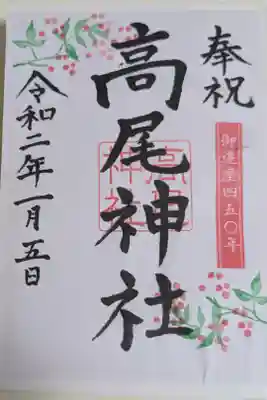 奉祝
御鎮座四五〇年
高尾神社
高尾神社
令和二年一月五日